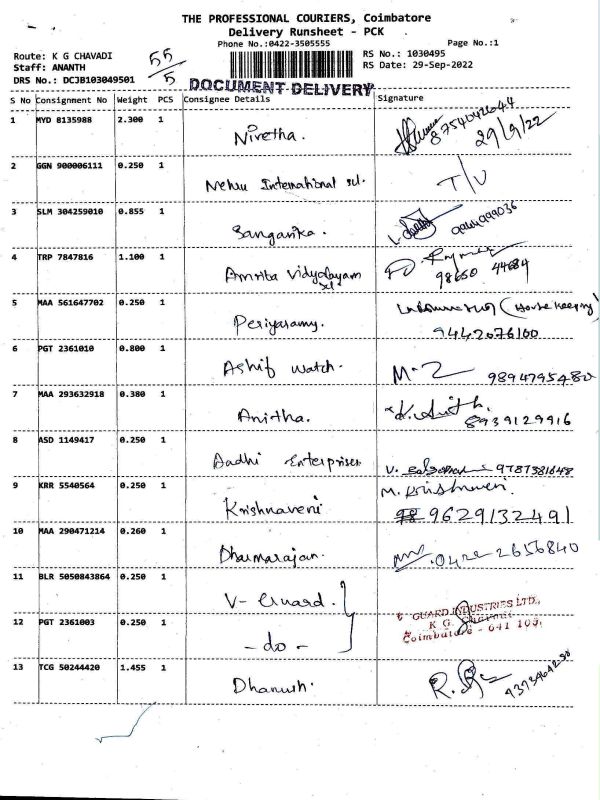 THE PROFESSIONAL COURIERS, Coimbatore
Delivery Runsheet - PCK
Phone No.:0422-3505555 Page No.:1
Route: K G CHAVADI 55/5 RS No.: 1030495
Staff: ANANTH RS Date: 29-Sep-2022
DRS No.: DCJB103049501
DOCUMENT DELIVERY
S No Consignment No Weight PCS Consignee Details Signature
1 MYD 8135988 2.300 1 Nivetha. 8754042644 29/9/22
2 GGN 900006111 0.250 1 Nehru International scl. T/U
3 SLM 304259010 0.855 1 Sangarika.
4 TRP 7847816 1.100 1 Amrita Vidyalayam scl 98650 44684
5 MAA 561647702 0.250 1 Periyasamy. (House Keeping)
9442076100
6 PGT 2361010 0.800 1 Ashif watch. M. 9894795480
7 MAA 293632918 0.380 1 Anitha. K. Anith. 8939129916
8 ASD 1149417 0.250 1 Aadhi Enterprises V. 9787381648
9 KRR 5540564 0.250 1 Krishnaveni M. Krishnaveni.
9629132491
10 MAA 290471214 0.260 1 Dharmarajan. 0422 2656840
11 BLR 5050843864 0.250 1 V- Guard. GUARD INDUSTRIES LTD.,
K G Chavadi
Coimbatore - 641 105.
12 PGT 2361003 0.250 1 - do -
13 TCG 50244420 1.455 1 Dhanush.